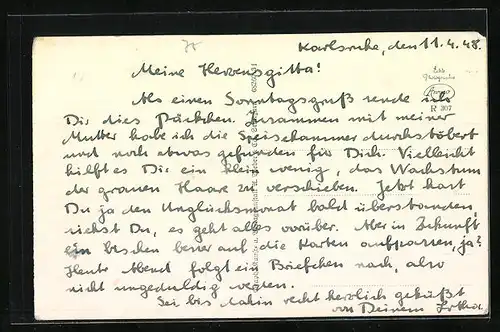 Karlsruhe, den 11.4.48.
Meine Herzensgitta!
Als einen Sonntagsgruß sende ich
Dir dies Päckchen. Zusammen mit meiner
Mutter habe ich die Speisekammer durchstöbert
und noch etwas gefunden für Dich. Vielleicht
hilft es Dir ein klein wenig, das Wachstum
der grauen Haare zu verschieben. Jetzt hast
Du ja den Unglücksmonat bald überstanden,
siehst Du, es geht alles vorüber. Aber in Zukunft
ein bischen besser auf die Karten aufpassen, ja?
Heute Abend folgt ein Briefchen nach, also
nicht ungeduldig werden.
Sei bis dahin recht herzlich geküßt
von Deinem
Echte
Photographie
R 307